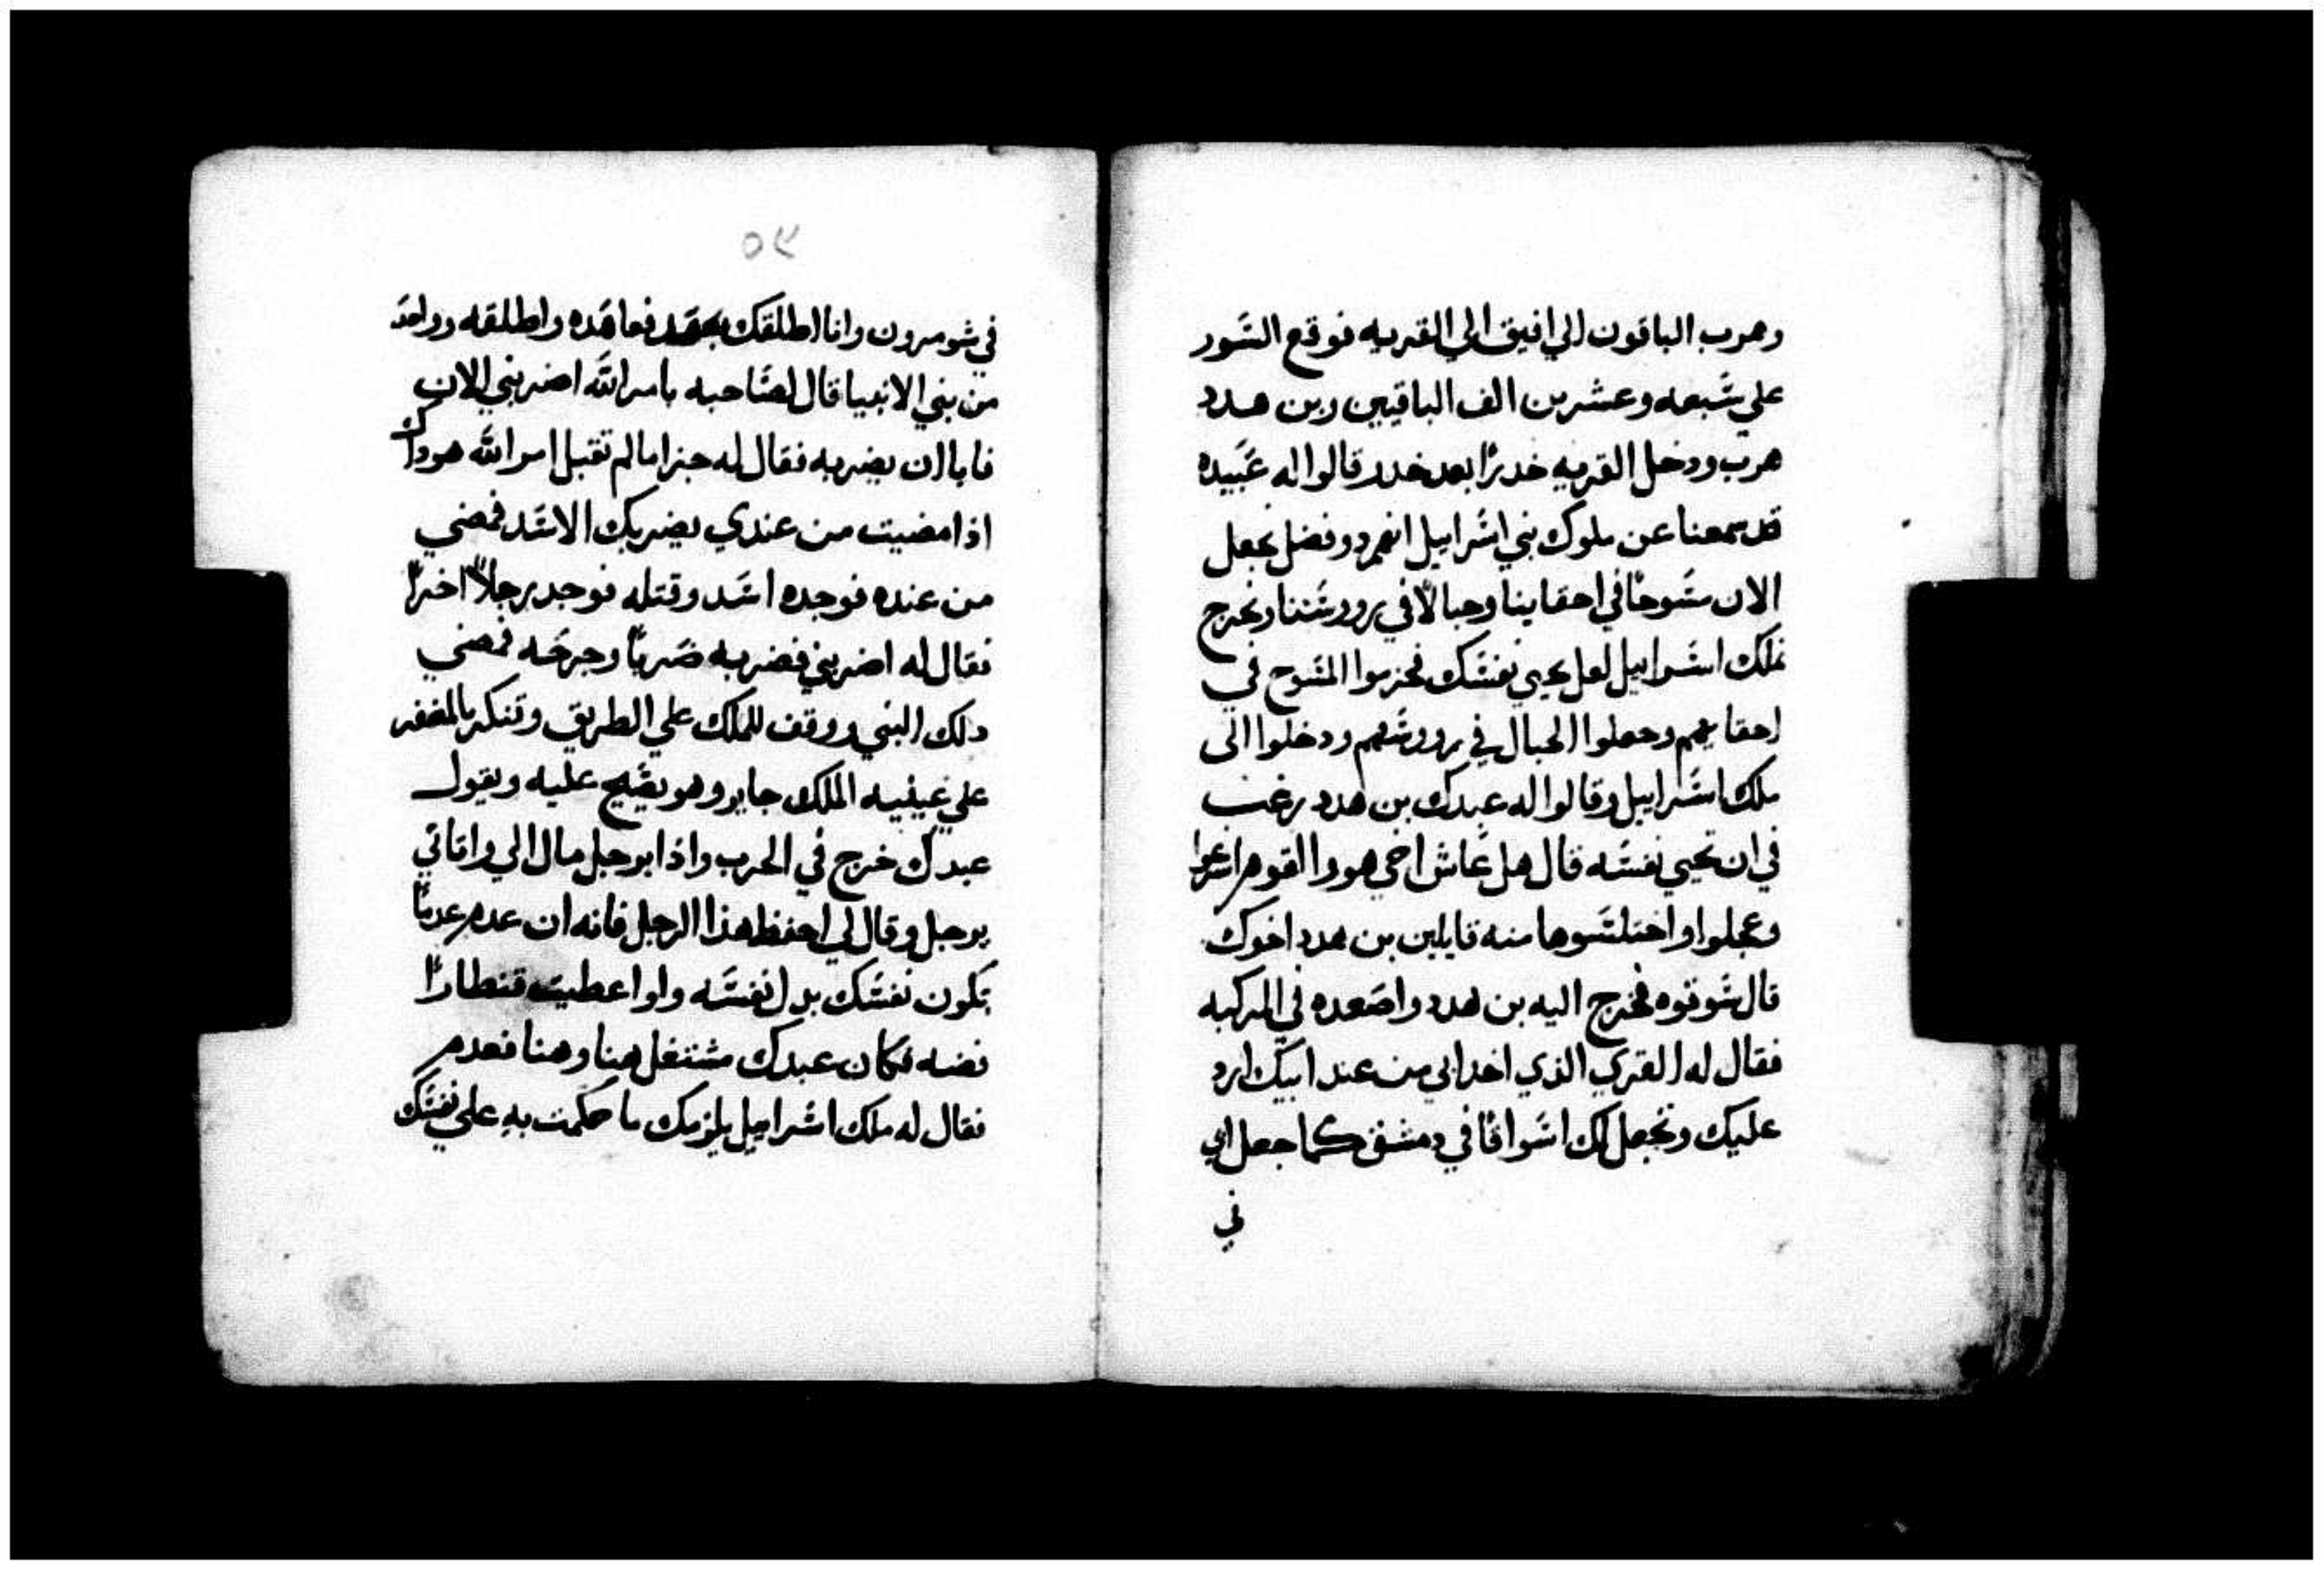 وهرب الباقون الي افيق الي القريه فوقع السور
علي سبعه وعشرين الف الباقيين وبن هدد
هرب ودخل القريه خدرًا بعد خدر قالوا له عبيده
قد سمعنا عن ملوك بني اسراييل انهم دو فضل نجعل
الان مسوحًا في احقاينا وحبالًا في رووسنا ونخرج
لملك اسراييل لعل يحيي نفسك فحزموا المسوح في
احقايهم وجعلوا الحبال في رووسهم ودخلوا الى
ملك اسراييل وقالوا له عبدك بن هدد رغب
في ان تحيي نفسه قال هل عاش اخي هو والقوم اسرعوا
وعجلوا واختلسوها منه قايلين بن هدد اخوك
قال سوقوه فخرج اليه بن هدد واصعده في المركبه
فقال له القري الذي اخد ابي من عند ابيك ارد
عليك وتجعل لك اسواقًا في دمشق كما جعل ابي
في
٥٢
في شومرون وانا اطلقك بعهد فعاهده واطلقه وواحد
من بني الانبيا قال لصاحبه بامر الله اضربني الان
فابا ان يضربه فقال له جزا ما لم تقبل امر الله هوداك
اذا مضيت من عندي يضربك الاسد فمضي
من عنده فوجده اسد وقتله فوجد رجلًا اخرًا
فقال له اضربني فضربه ضربًا وجرحه فمضي
دلك النبي ووقف للملك علي الطريق وتنكر بالمغفر
علي عينيه الملك جايز وهو يصيح عليه ويقول
عبدك خرج في الحرب واذا برجل مال الي واتاني
برجل وقال لي احفظ هذا الرجل فانه ان عدم عدمًا
تكون نفسك بدل نفسه واو اعطيت قنطارًا
فضه فكان عبدك مشتغل هنا وهنا فعدم
فقال له ملك اسراييل يلزمك ما حكمت به علي نفسك